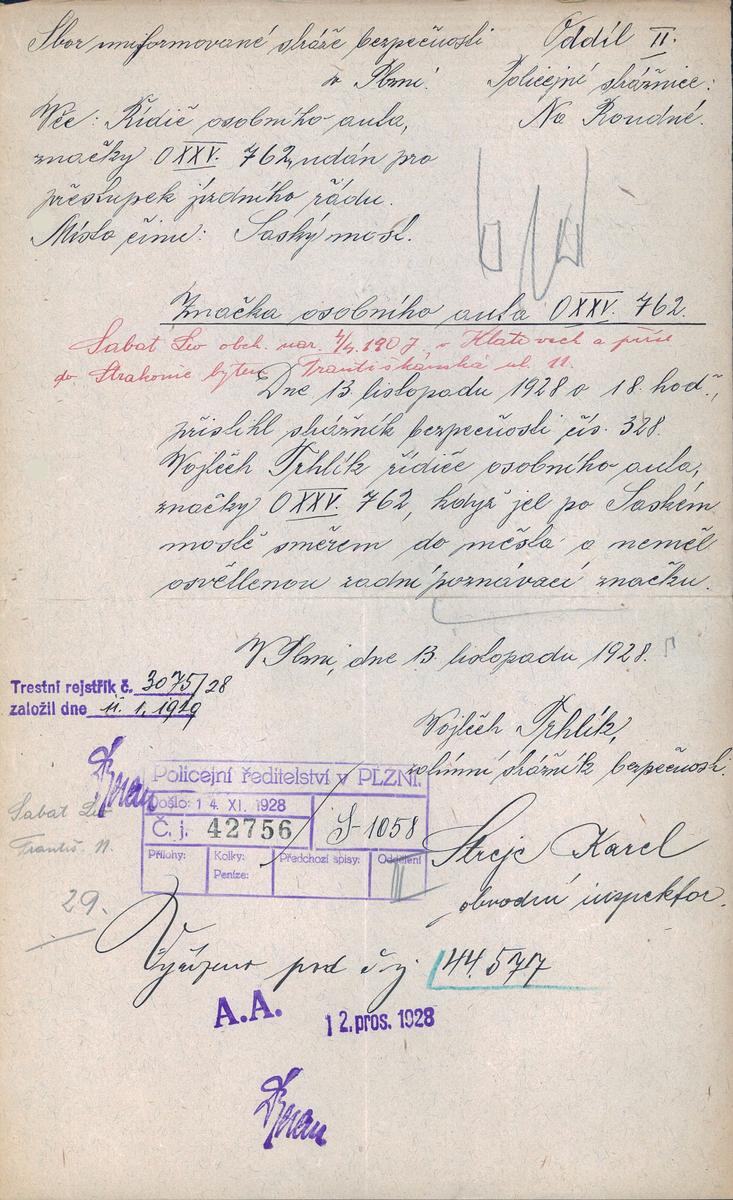 Sbor uniformované stráže bezpečnosti Oddíl II.
v Plzni. Policejní strážnice:
Věc: Řidič osobního auta, Na Roudné.
značky OXXV. 762, udán pro
přestupek jízdního řádu.
Místo činu: Saský most.
Značka osobního auta OXXV. 762.
Sabat Lev obch. nar. 1907 v Klatovech a přísl.
do Strakonic bytem Františkánská ul. 11.
Dne 13. listopadu 1928 o 18. hod.,
přistihl strážník bezpečnosti čís. 328.
Vojtěch Trhlík řidiče osobního auta,
značky OXXV. 762, když jel po Saském
mostě směrem do města a neměl
osvětlenou zadní poznávací značku.
V Plzni, dne 13. listopadu 1928.
Trestní rejstřík č. 3075/28
založil dne 11. 1. 1929
Vojtěch Trhlík,
strážník bezpečnosti.
Policejní ředitelství v PLZNI.
Došlo: 14. XI. 1928
Č. j. 42756 / S-1058
Přílohy: Kolky: Peníze: Předchozí spisy: Oddělení II
Sabat Lev
Františ. 11.
Strejc Karel
obvodní inspektor.
29.
Vyřízeno pod č. j. 44.577
A.A. 12. pros. 1928